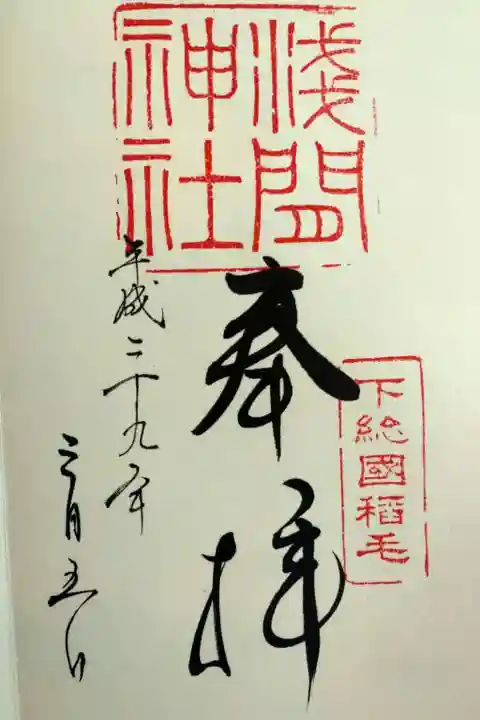 淺間
神社
下総國稲毛
奉拝
平成二十九年
三月五日